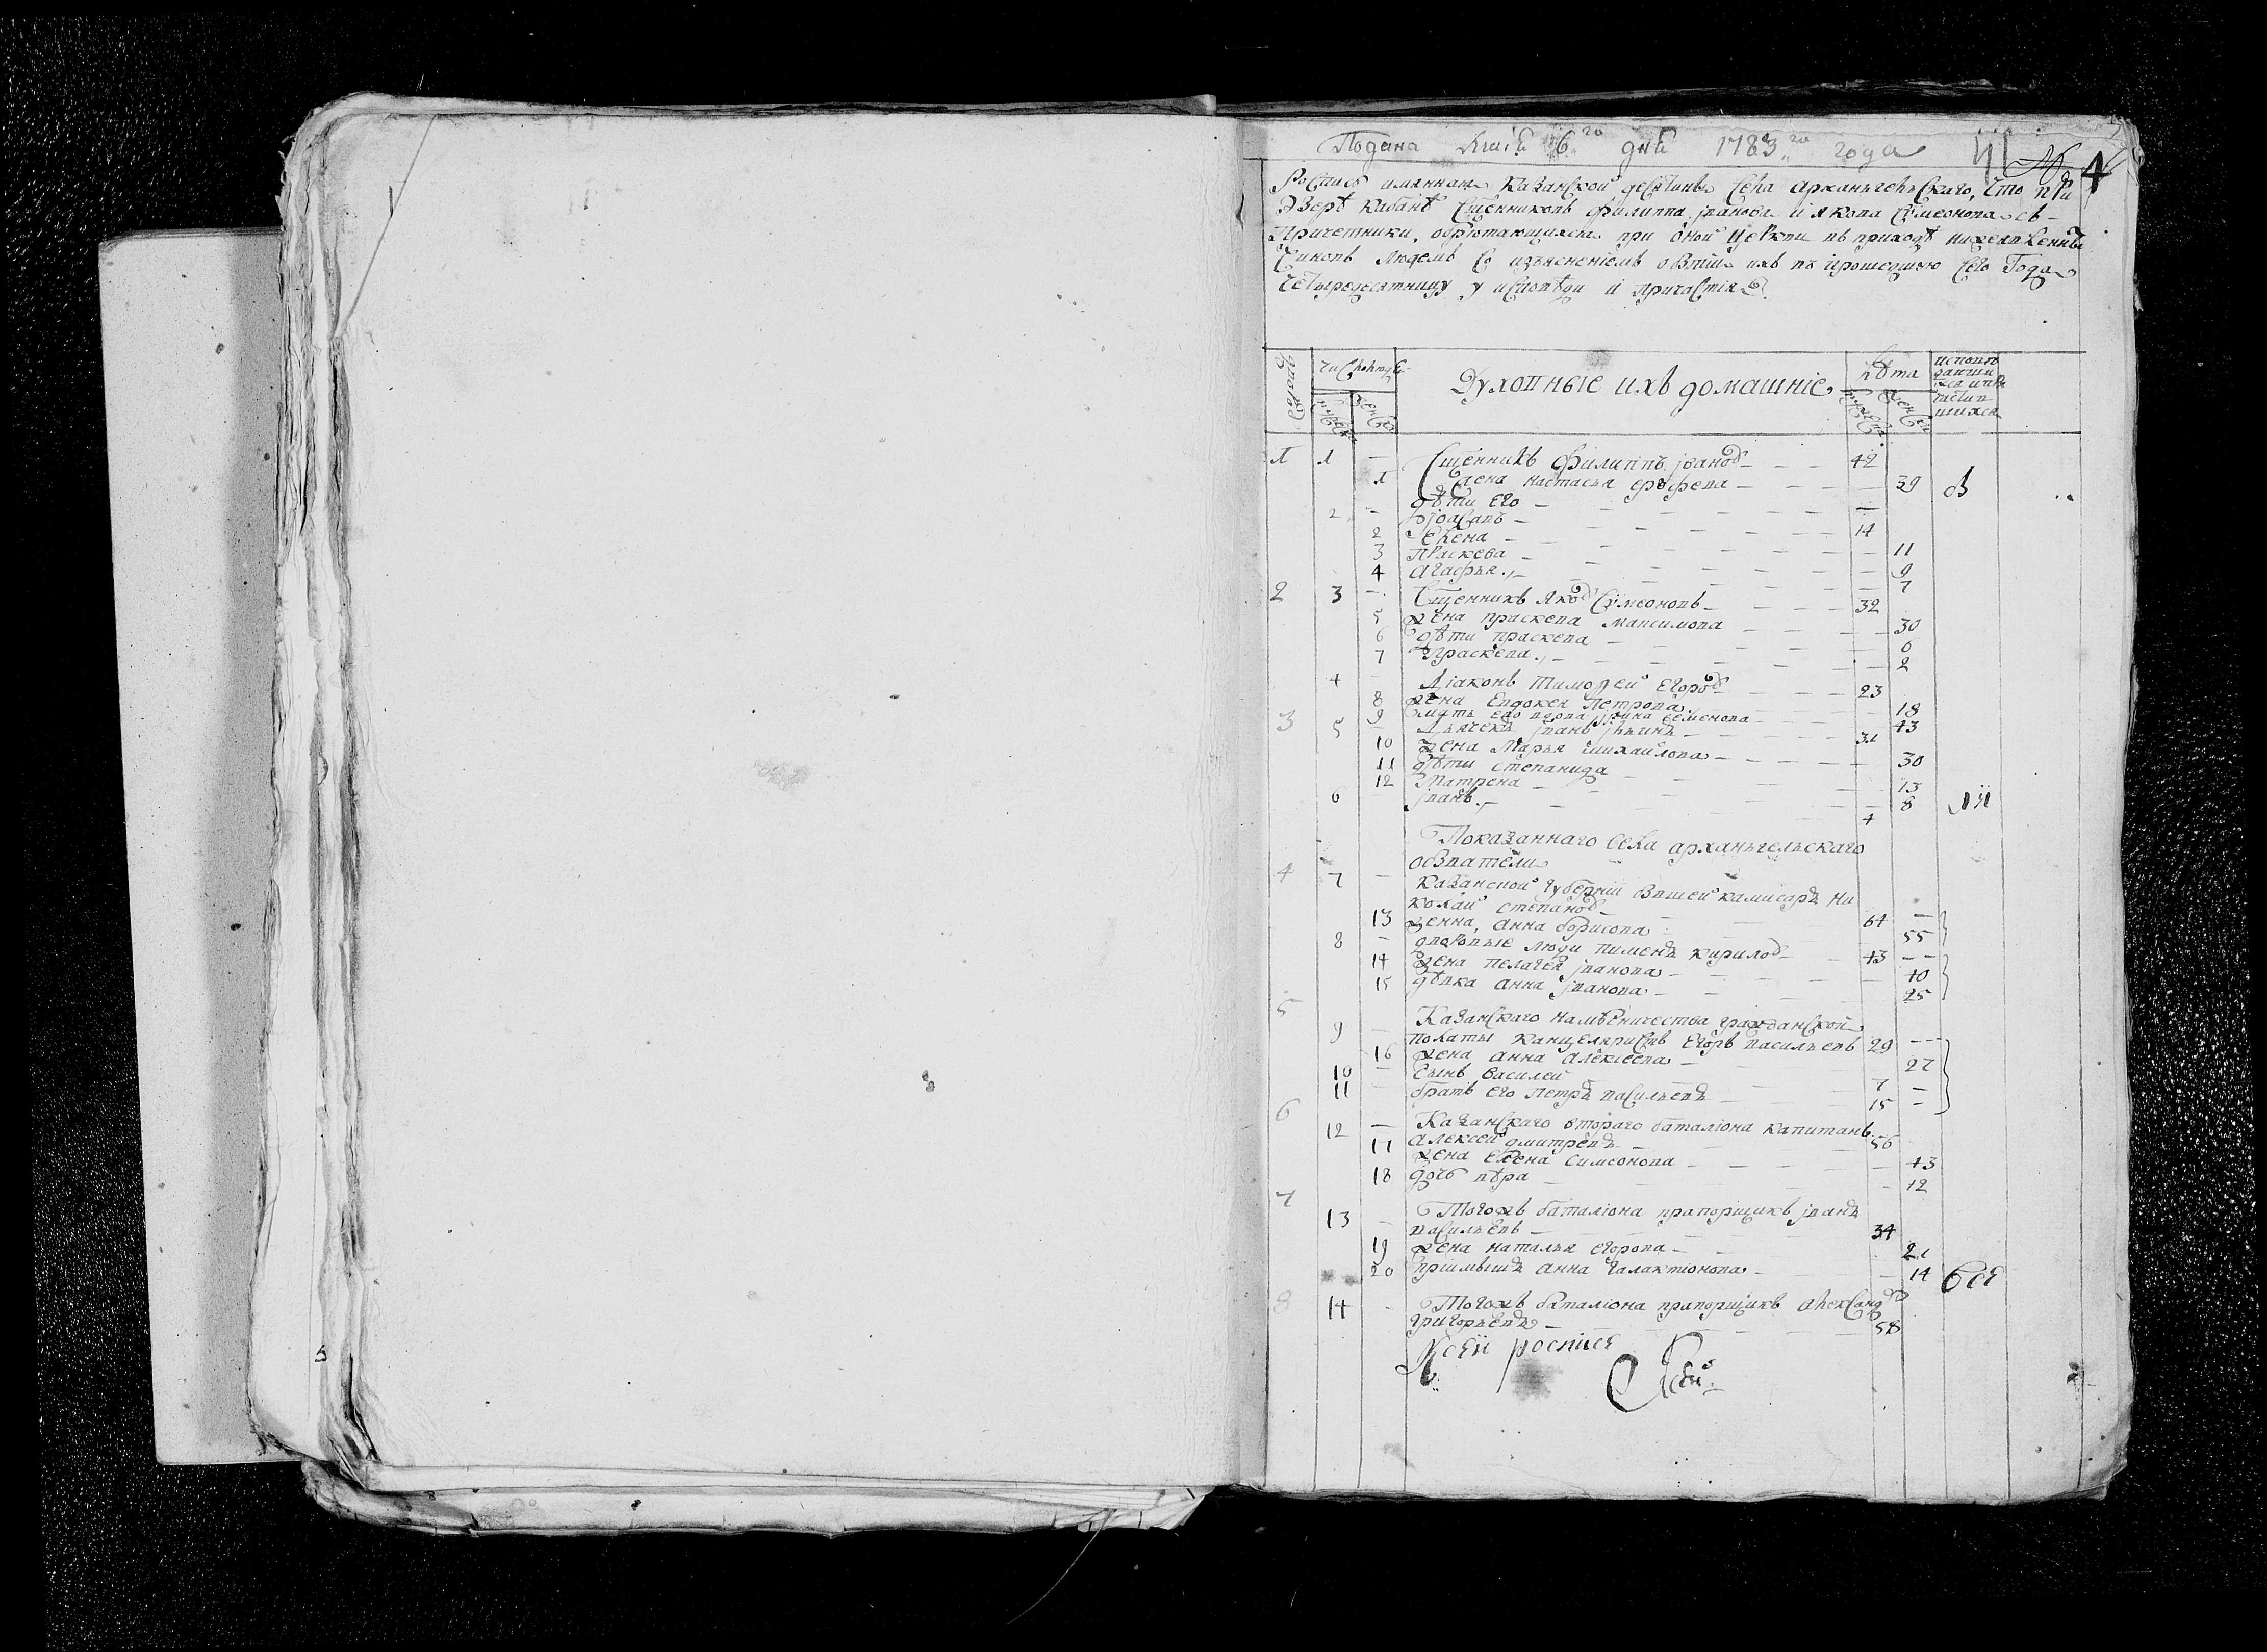 Подана Маїя 6го дня 1783го года
4
Роспись имянная Казанской десятины села Арханьгельскаго, что при
Озерѣ Кабанѣ Сщенниковъ Филиппа Іванова и Якова Сѵмеонова съ
Причетники, обрѣтающихся при оной Церкви въ приходѣ нижеявленныхъ
Чиновъ людемъ со изъясненїемъ о бытїи ихъ въ прошедшую сего Года
Четыредесятницу у исповѣди и причастїя
дворовъ
число людей
мужеска
женска
Духовные ихъ домашнїе
лѣта
мужеска
женска
исповѣ
давши
хся и при
частив
шихся
1 1 — Сщенникъ Филиппъ Іванов 42
1 Жена Настасья Ерофева 39
дѣти его
2 —
2 Елена 14
3 Праскева 11
4 Агафья 9
7
2 3 — Сщенникъ Яков Сѵмеоновъ 32
5 жена Праскева Максимова 30
6 дѣти Праскева 6
7 Праскева 2
4 Дїаконъ Тимофей Егоров 23
8 жена Евдокея Петрова 18
9 мать его вдова Ірина Семенова 43
3 5 Дьячекъ Іванъ Ильинъ 31
10 жена Марья Михайлова 30
11 дѣти Степанида 13
12 Матрена 8
6 Іванъ 4
Показаннаго села арханьгельскаго
обыватели
4 7 — Казанской губернїи бывшей камисаръ Ни
колай Степанов 64 —
13 женна, Анна Борисова 55
8 — дворовые люди Пименъ Кирилов 43 —
14 жена Пелагея Іванова 40
15 дѣвка Анна Іванова 25
5 9 — Казанскаго намѣсничества гражданской
полаты канцеляристъ Егоръ Васильевъ 29 —
16 жена Анна Алексеева 27
10 — сынъ Василей 7 —
11 братъ его Петръ Васильевъ 15 —
6 12 — Казанскаго втораго баталїона капитанъ
Алексей Дмитревъ 56
17 жена Елена Симеонова 43
18 дочь Вѣра 12
7 13 — Тогожъ баталїона прапорщикъ Іванъ
Васильевъ 34
19 жена Наталья Егорова 21
20 прїимышъ Анна Галактїонова 14
8 14 — Тогожъ баталїона прапорщикъ Александръ
Григорьевъ 58
Ксей росписе